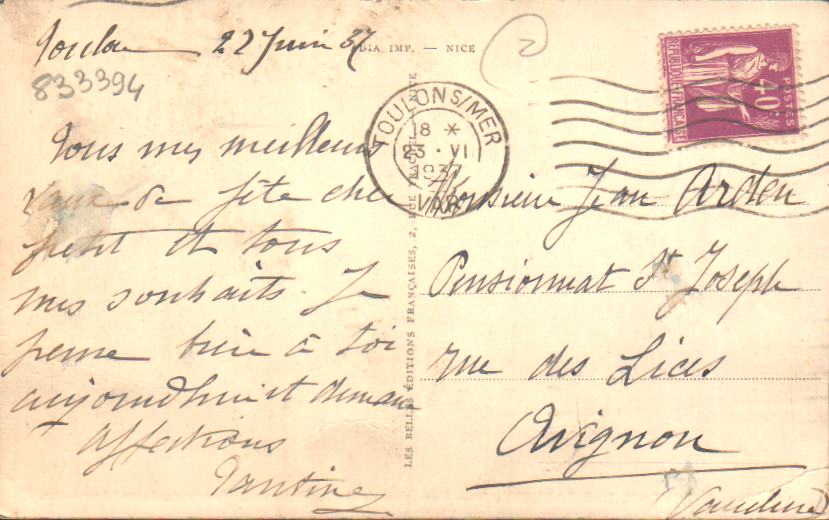 Toulon 22 Juin 37
833394
Tous mes meilleurs
vœux de fête cher
petit et tous
mes souhaits. Je
pense bien à toi
aujourd'hui et demain
Affections
Tantine
DIA IMP. — NICE
2
LES BELLES ÉDITIONS FRANÇAISES, 2, RUE NICE
TOULON S/MER
18 *
23 · VI
1937
VAR
REPUBLIQUE FRANÇAISE
40c
POSTES
Monsieur Jean Arden
Pensionnat St Joseph
rue des Lices
Avignon
(Vaucluse)